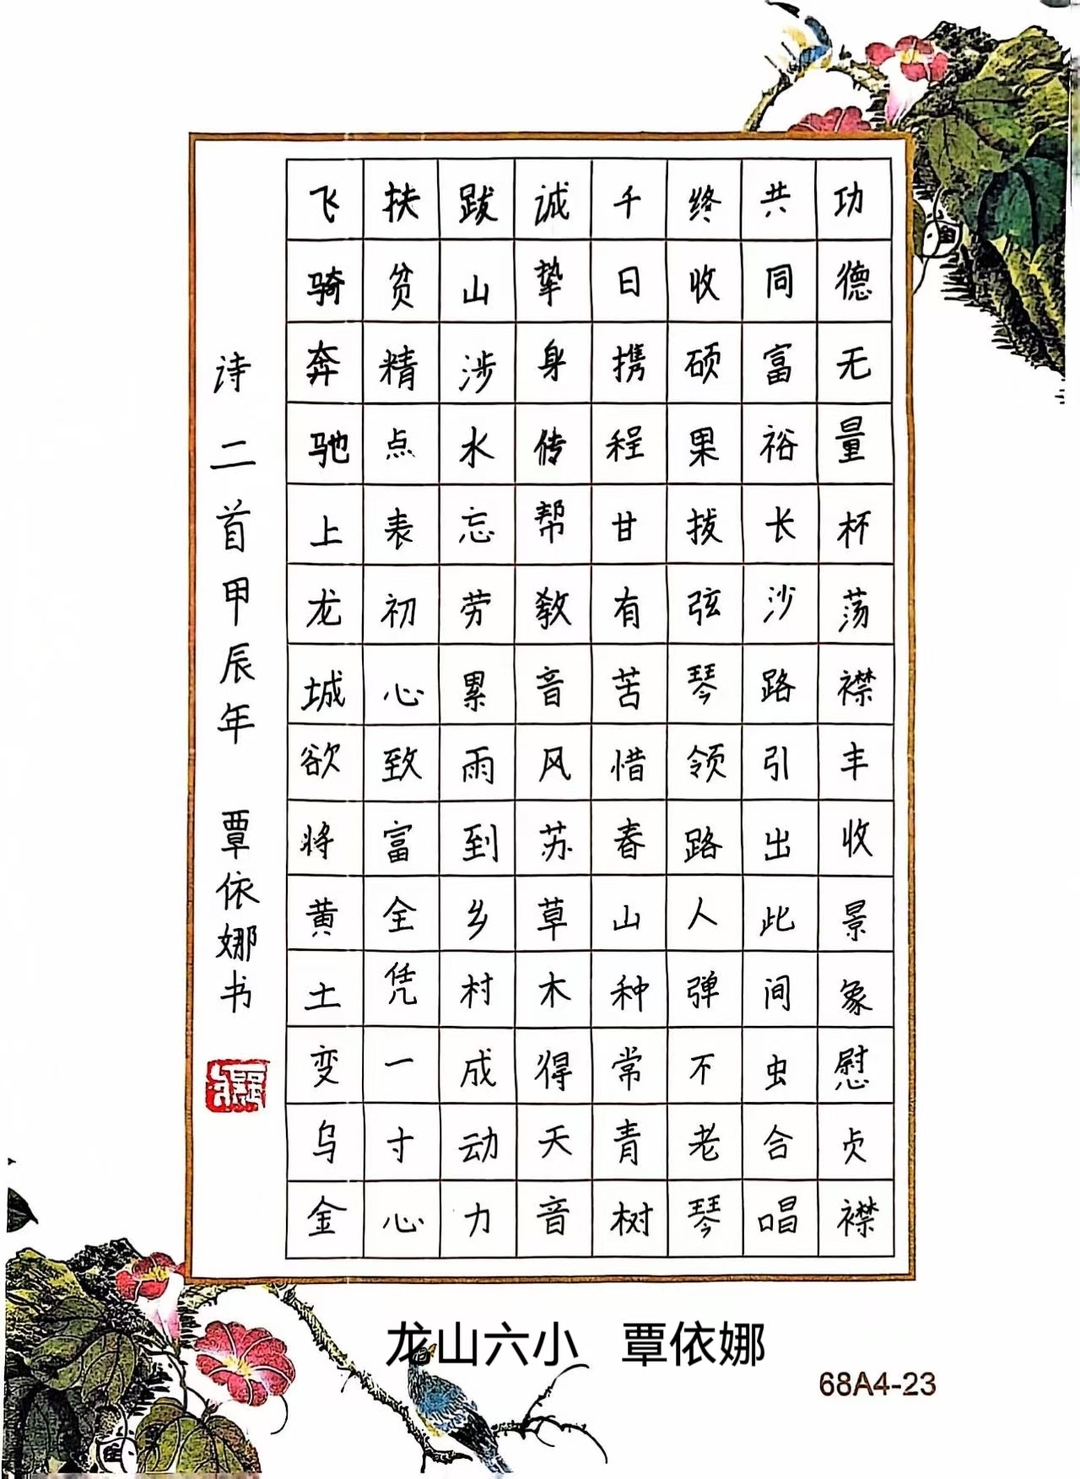 功德无量杯荡襟丰收景象慰贞襟
共同富裕长沙路引出此间虫合唱
终收硕果拔弦琴领路人弹不老琴
千日携程甘有苦惜春山种常青树
诚挚身传帮教音风苏草木得天音
跋山涉水忘劳累雨到乡村成动力
扶贫精点表初心致富全凭一寸心
飞骑奔驰上龙城欲将黄土变乌金
诗二首甲辰年 覃依娜书
龙山六小 覃依娜
68A4-23